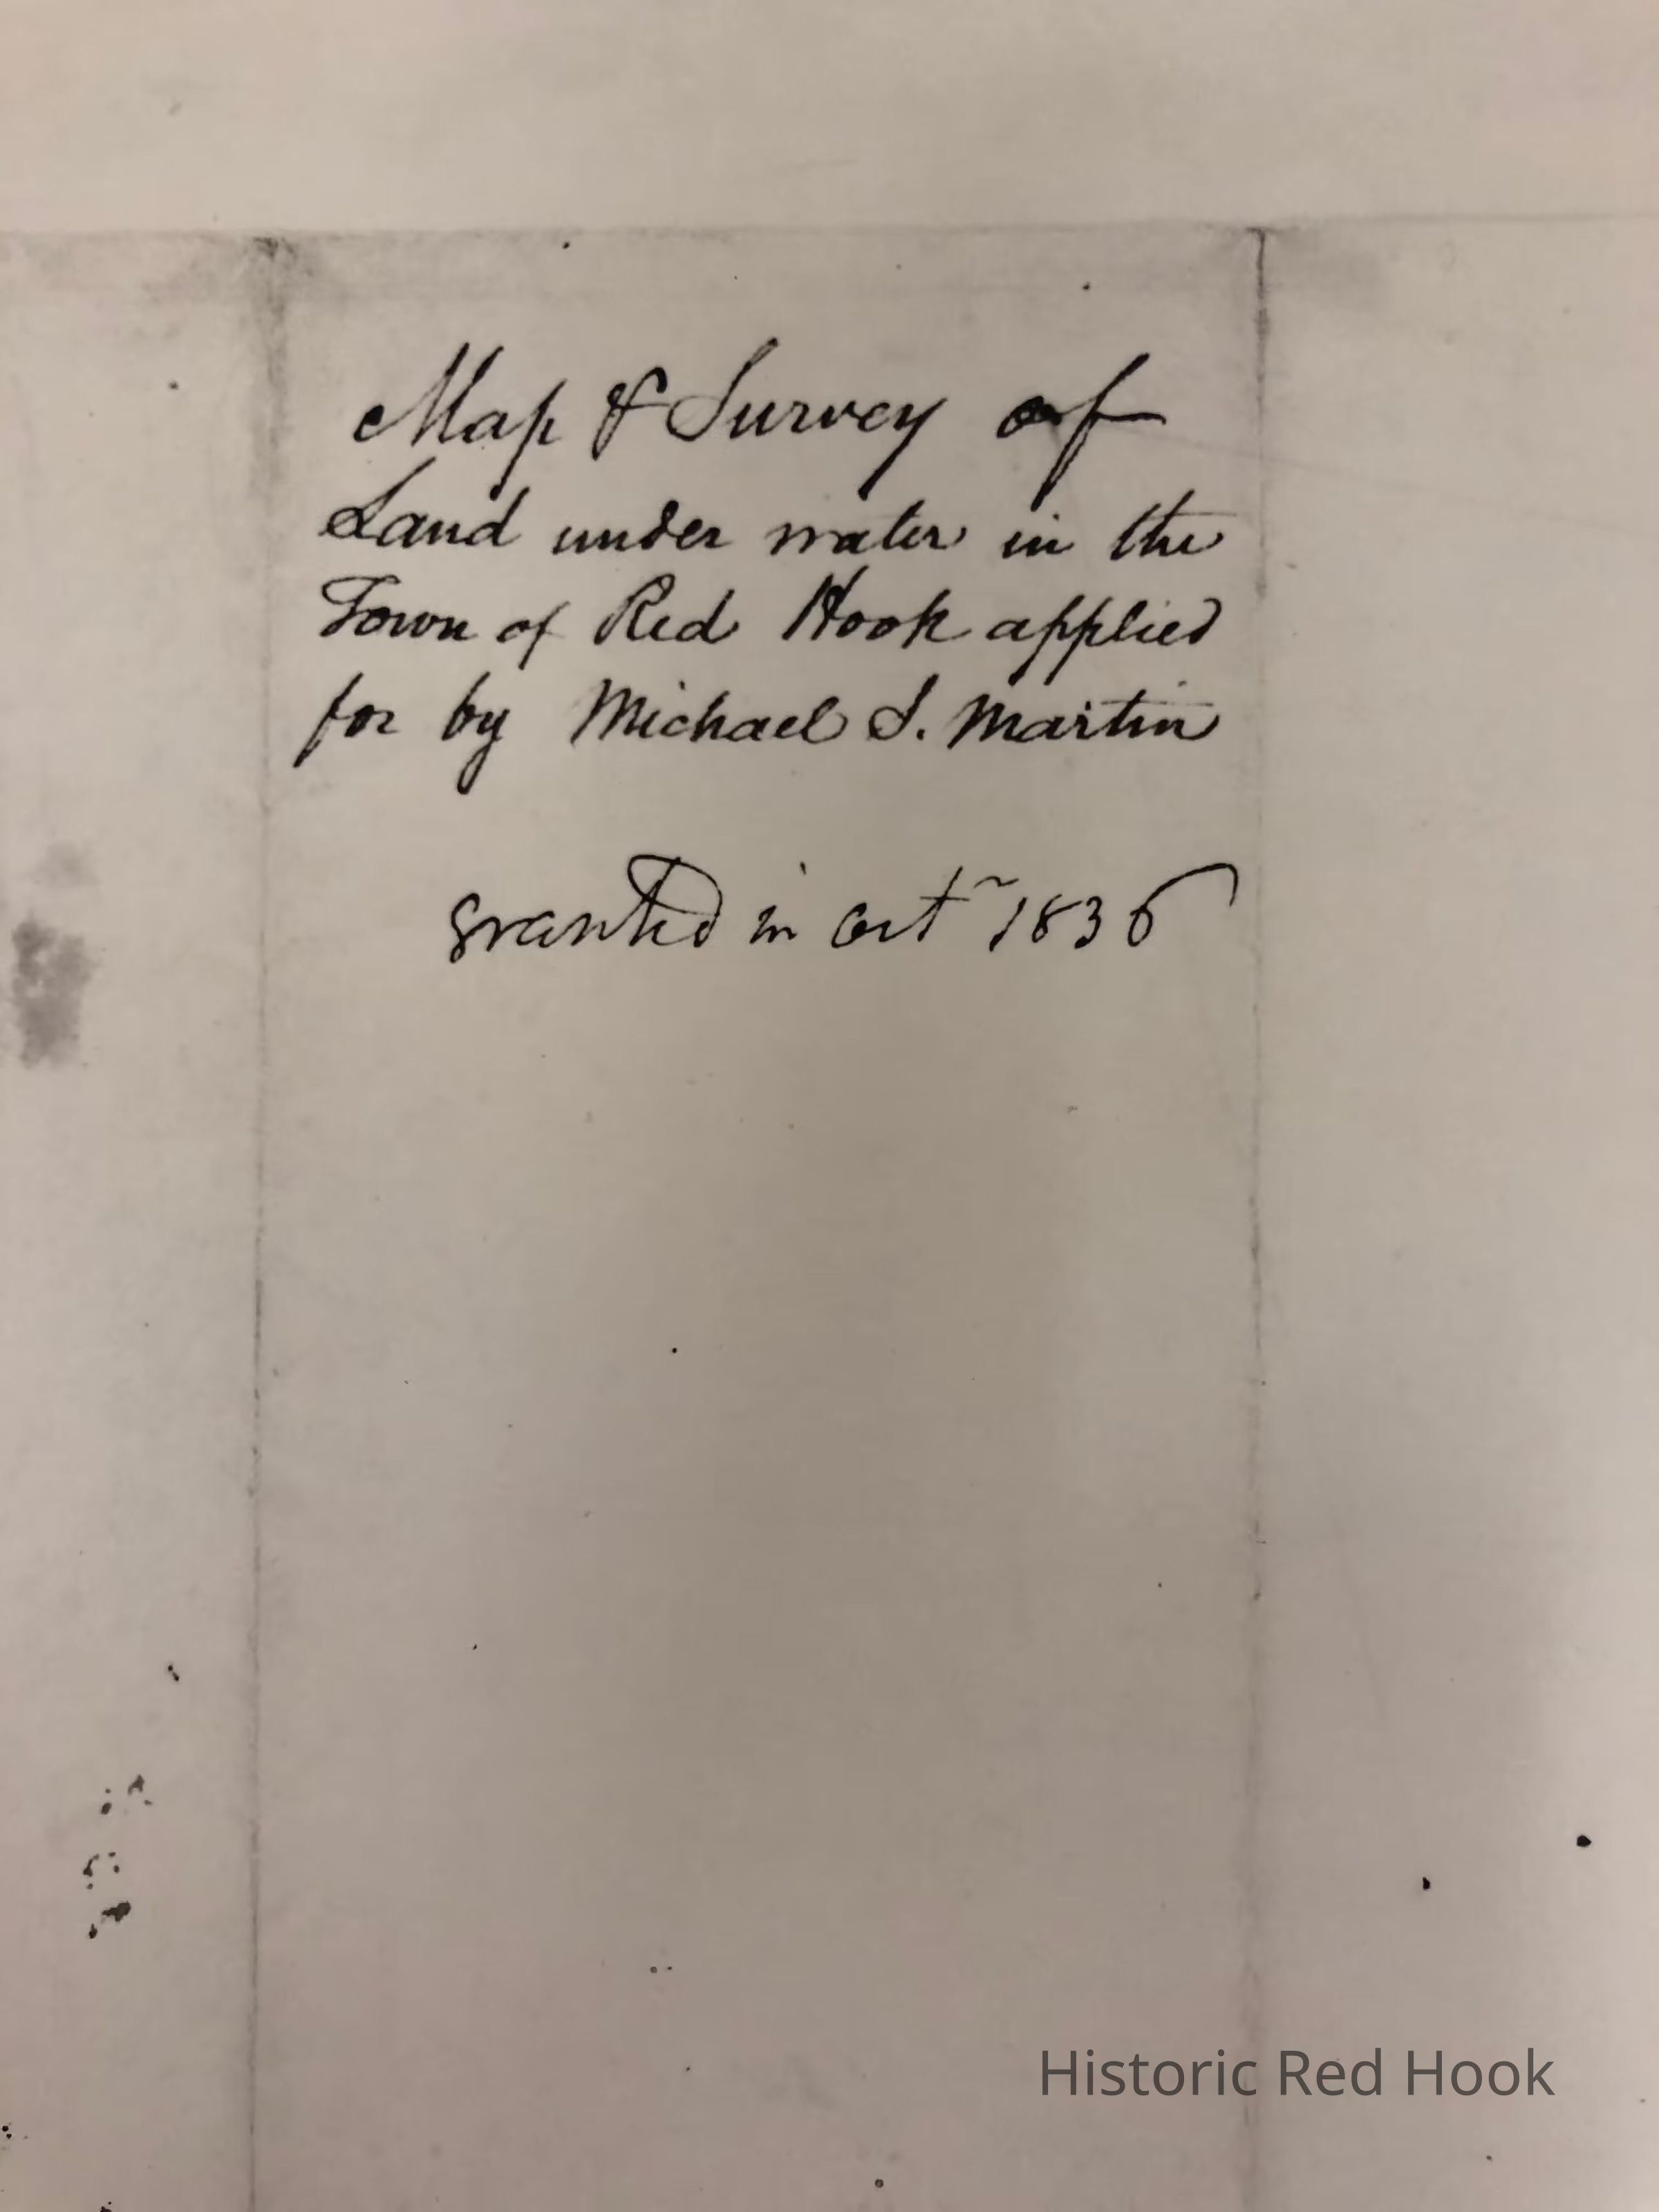 Map & Survey of
Land under water in the
Town of Red Hook applied
for by Michael S. Martin
granted in Oct 1836
Historic Red Hook